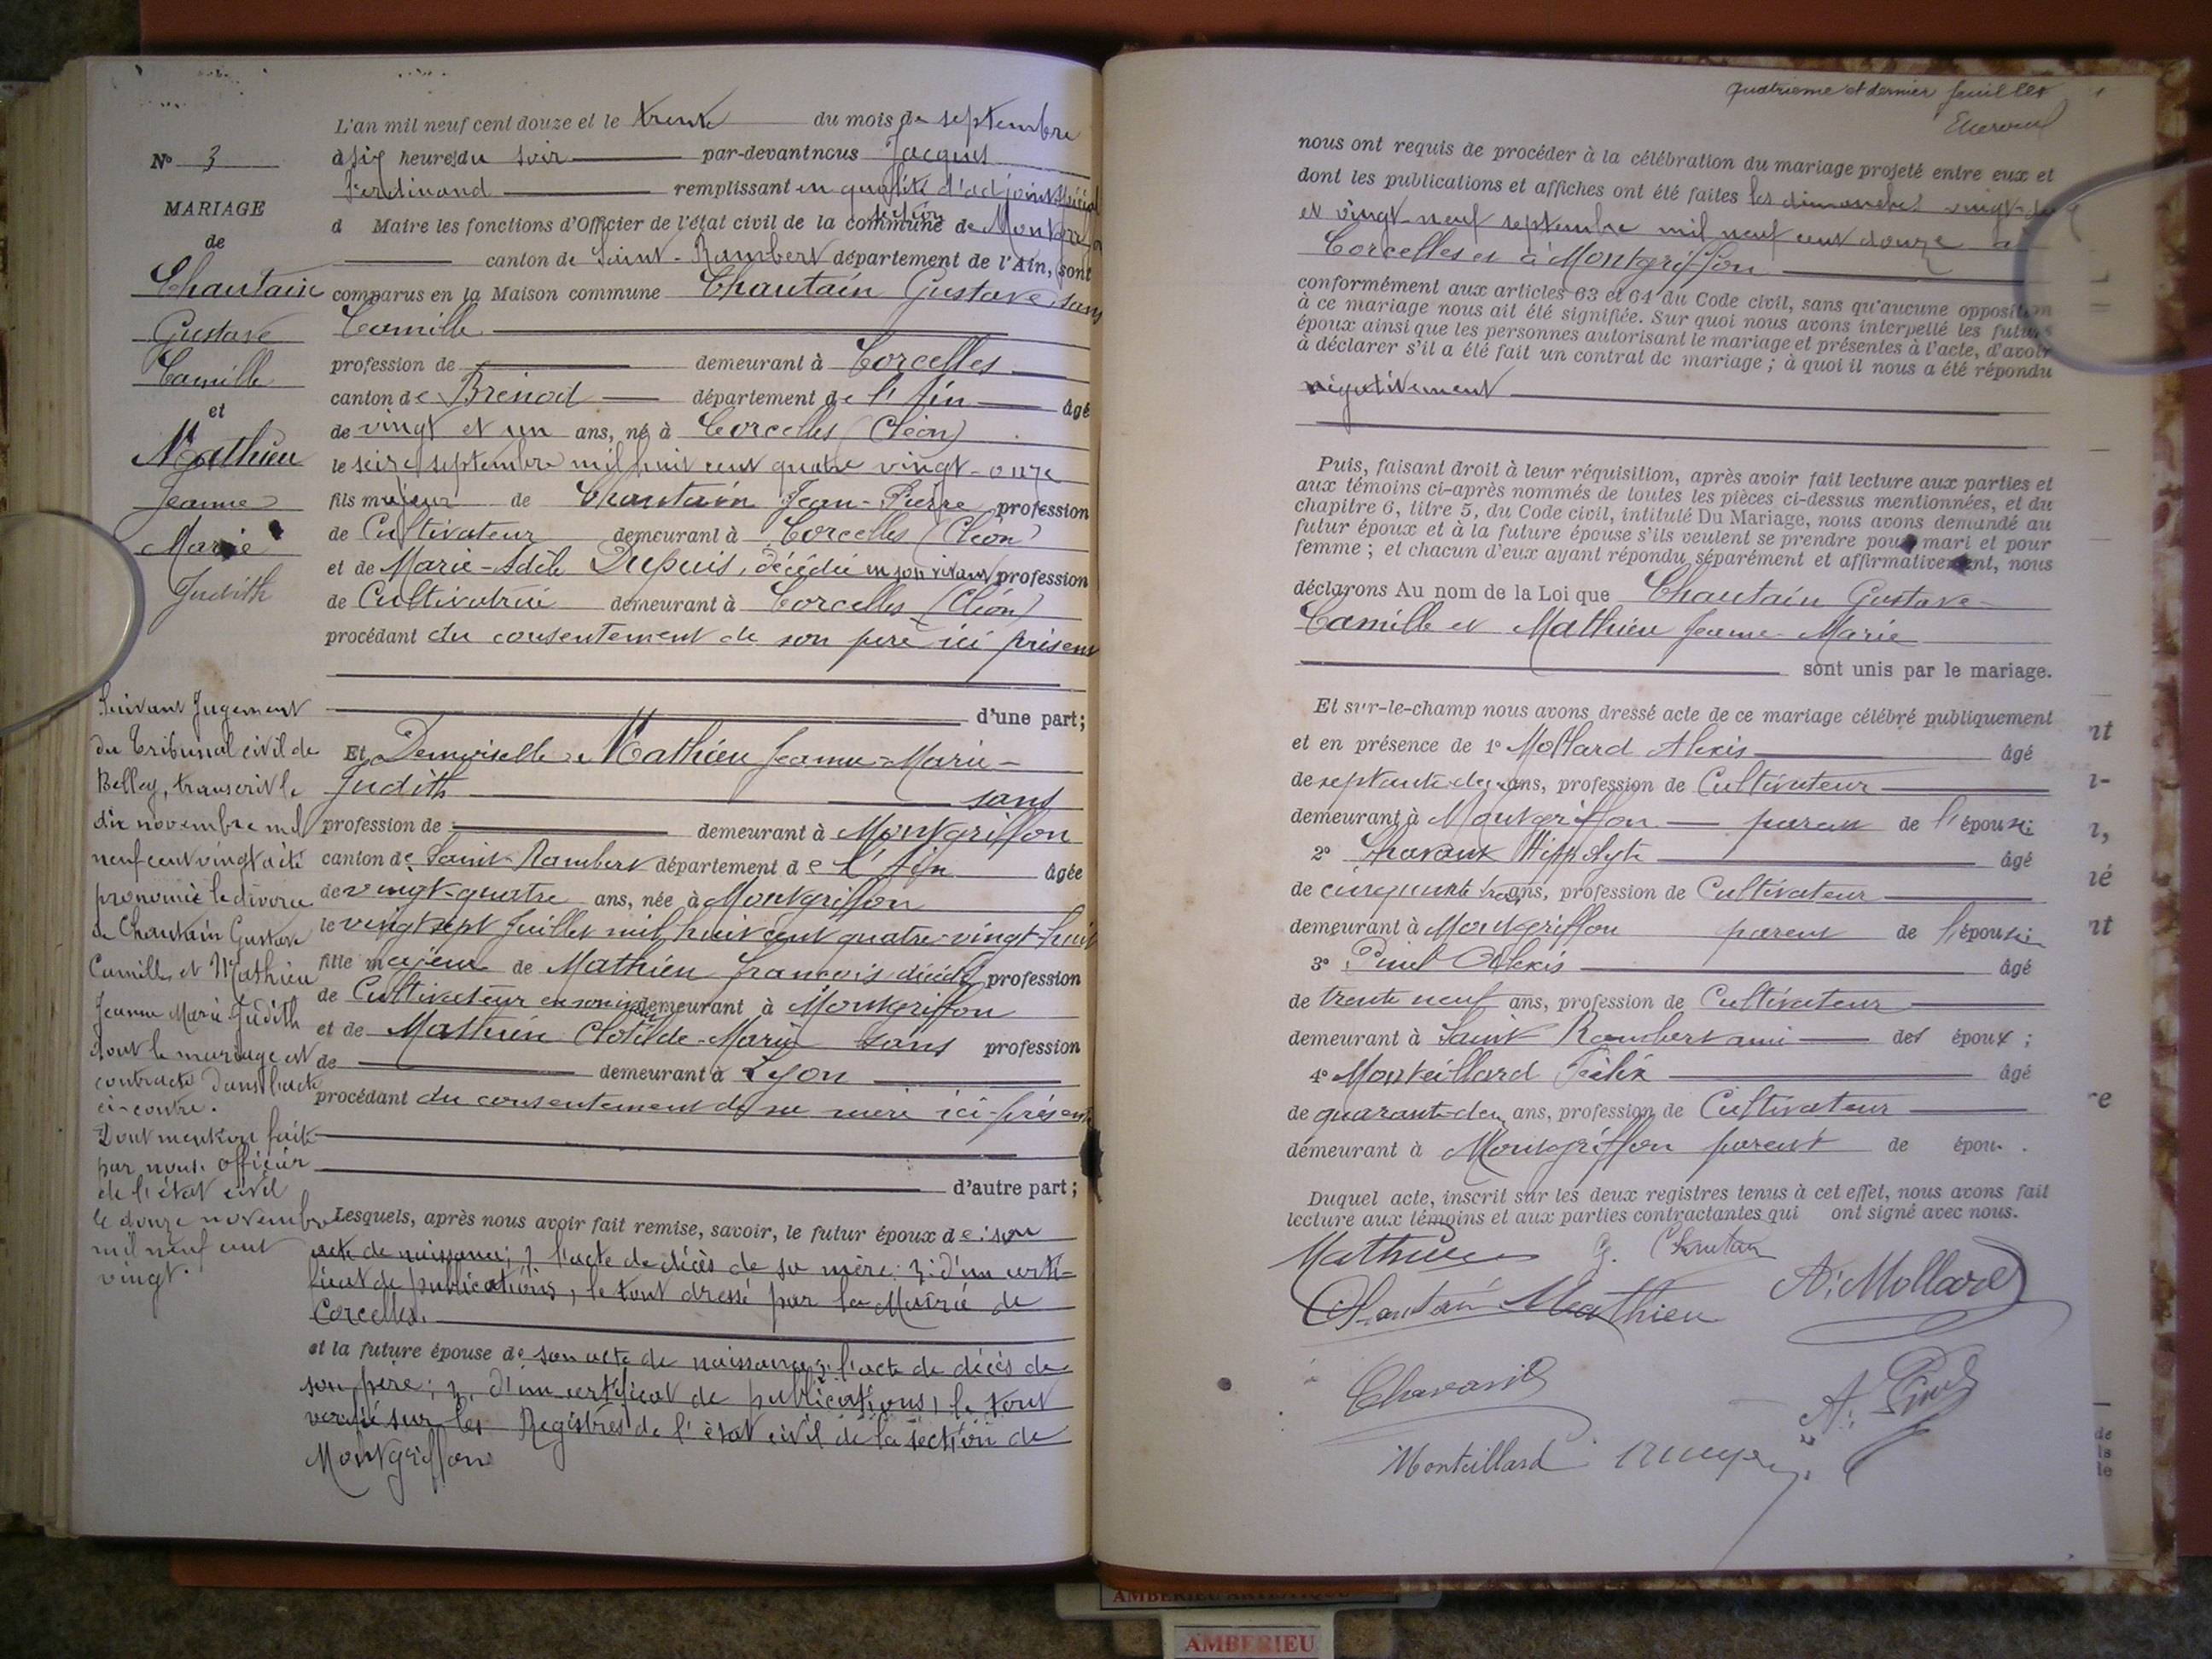 N° 3
MARIAGE
de
Chantain
Gustave
Camille
et
Mathieu
Jeanne
Marie
Judith
Suivant Jugement
du Tribunal civil de
Belley, transcrit le
dix novembre mil
neuf cent vingt a été
prononcé le divorce
de Chantain Gustave
Camille et Mathieu
Jeanne Marie Judith
dont le mariage est
contracté dans l'acte
ci-contre.
Dont mention faite
par nous officier
de l'état civil
le douze novembre
mil neuf cent
vingt.
L'an mil neuf cent douze et le trente du mois de septembre
à six heures du soir par-devant nous Jacquet
Ferdinand remplissant en qualité d'adjoint spécial
d Maire les fonctions d'Officier de l'état civil de la commune section de Montgriffon
canton de Saint-Rambert département de l'Ain, sont
comparus en la Maison commune Chantain Gustave sans
Camille
profession de demeurant à Corcelles
canton de Brénod département de l'Ain âgé
de vingt et un ans, né à Corcelles (Cléon)
le seize septembre mil huit cent quatre vingt-onze
fils majeur de Chantain Jean-Pierre profession
de Cultivateur demeurant à Corcelles (Cléon)
et de Marie-Adèle Dupuis, décédée en son vivant profession
de Cultivatrice demeurant à Corcelles (Cléon)
procédant du consentement de son père ici présent
d'une part;
Et Demoiselle Mathieu Jeanne-Marie-
Judith sans
profession de demeurant à Montgriffon
canton de Saint-Rambert département de l'Ain âgée
de vingt-quatre ans, née à Montgriffon
le vingt sept Juillet mil huit cent quatre-vingt-huit
fille majeure de Mathieu François décédé profession
de Cultivateur en son vivant demeurant à Montgriffon
et de Mathieu Clotilde-Marie sans profession
de demeurant à Lyon
procédant du consentement de sa mère ici présente
d'autre part;
Lesquels, après nous avoir fait remise, savoir, le futur époux de: son
acte de naissance; 2 l'acte de décès de sa mère; 3: d'un certi-
ficat de publications, le tout dressé par la Mairie de
Corcelles.
et la future épouse de son acte de naissance; 2: l'acte de décès de
son père; 3, d'un certificat de publications, le tout
vérifié sur les Registres de l'état civil de la section de
Montgriffon
quatrieme et dernier feuillet
nous ont requis de procéder à la célébration du mariage projeté entre eux et
dont les publications et affiches ont été faites les dimanches vingt-
et vingt-neuf septembre mil neuf cent douze à
Corcelles et à Montgriffon
conformément aux articles 63 et 64 du Code civil, sans qu'aucune opposition
à ce mariage nous ait été signifiée. Sur quoi nous avons interpellé les futurs
époux ainsi que les personnes autorisant le mariage et présentes à l'acte, d'avoir
à déclarer s'il a été fait un contrat de mariage; à quoi il nous a été répondu
négativement
Puis, faisant droit à leur réquisition, après avoir fait lecture aux parties et
aux témoins ci-après nommés de toutes les pièces ci-dessus mentionnées, et du
chapitre 6, titre 5, du Code civil, intitulé Du Mariage, nous avons demandé au
futur époux et à la future épouse s'ils veulent se prendre pour mari et pour
femme; et chacun d'eux ayant répondu séparément et affirmativement, nous
déclarons Au nom de la Loi que Chantain Gustave-
Camille et Mathieu Jeanne-Marie
sont unis par le mariage.
Et sur-le-champ nous avons dressé acte de ce mariage célébré publiquement
et en présence de 1° Mollard Alexis âgé
de septante-deux ans, profession de Cultivateur
demeurant à Montgriffon parent de l'épouse;
2° Chavant Hippolyte âgé
de cinquante trois ans, profession de Cultivateur
demeurant à Montgriffon parent de l'épouse;
3° Pinel Alexis âgé
de trente neuf ans, profession de Cultivateur
demeurant à Saint Rambert ami des époux;
4° Monteillard Félix âgé
de quarante-deux ans, profession de Cultivateur
demeurant à Montgriffon parent de épou .
Duquel acte, inscrit sur les deux registres tenus à cet effet, nous avons fait
lecture aux témoins et aux parties contractantes qui ont signé avec nous.
Mathieu G. Chantain
Chantain Mathieu A. Mollard
Chavant
A. Pinel
Monteillard
AMBERIEU